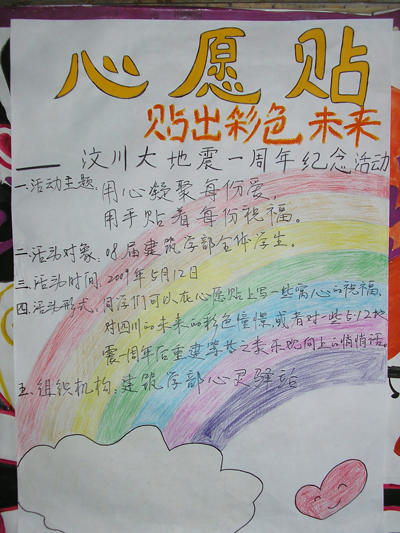 心愿贴
贴出彩色未来
——汶川大地震一周年纪念活动
一.活动主题:用心凝聚每份爱,
用手贴着每份祝福。
二.活动对象:08届建筑学部全体学生。
三.活动时间:2009年5月12日
四.活动形式:同学们可以在心愿贴上写一些寄心的祝福,
对四川的未来的彩色憧憬,或者对一些5.12地
震一周年后重建家长之乐观向上的悄悄话。
五.组织机构:建筑学部心灵驿站